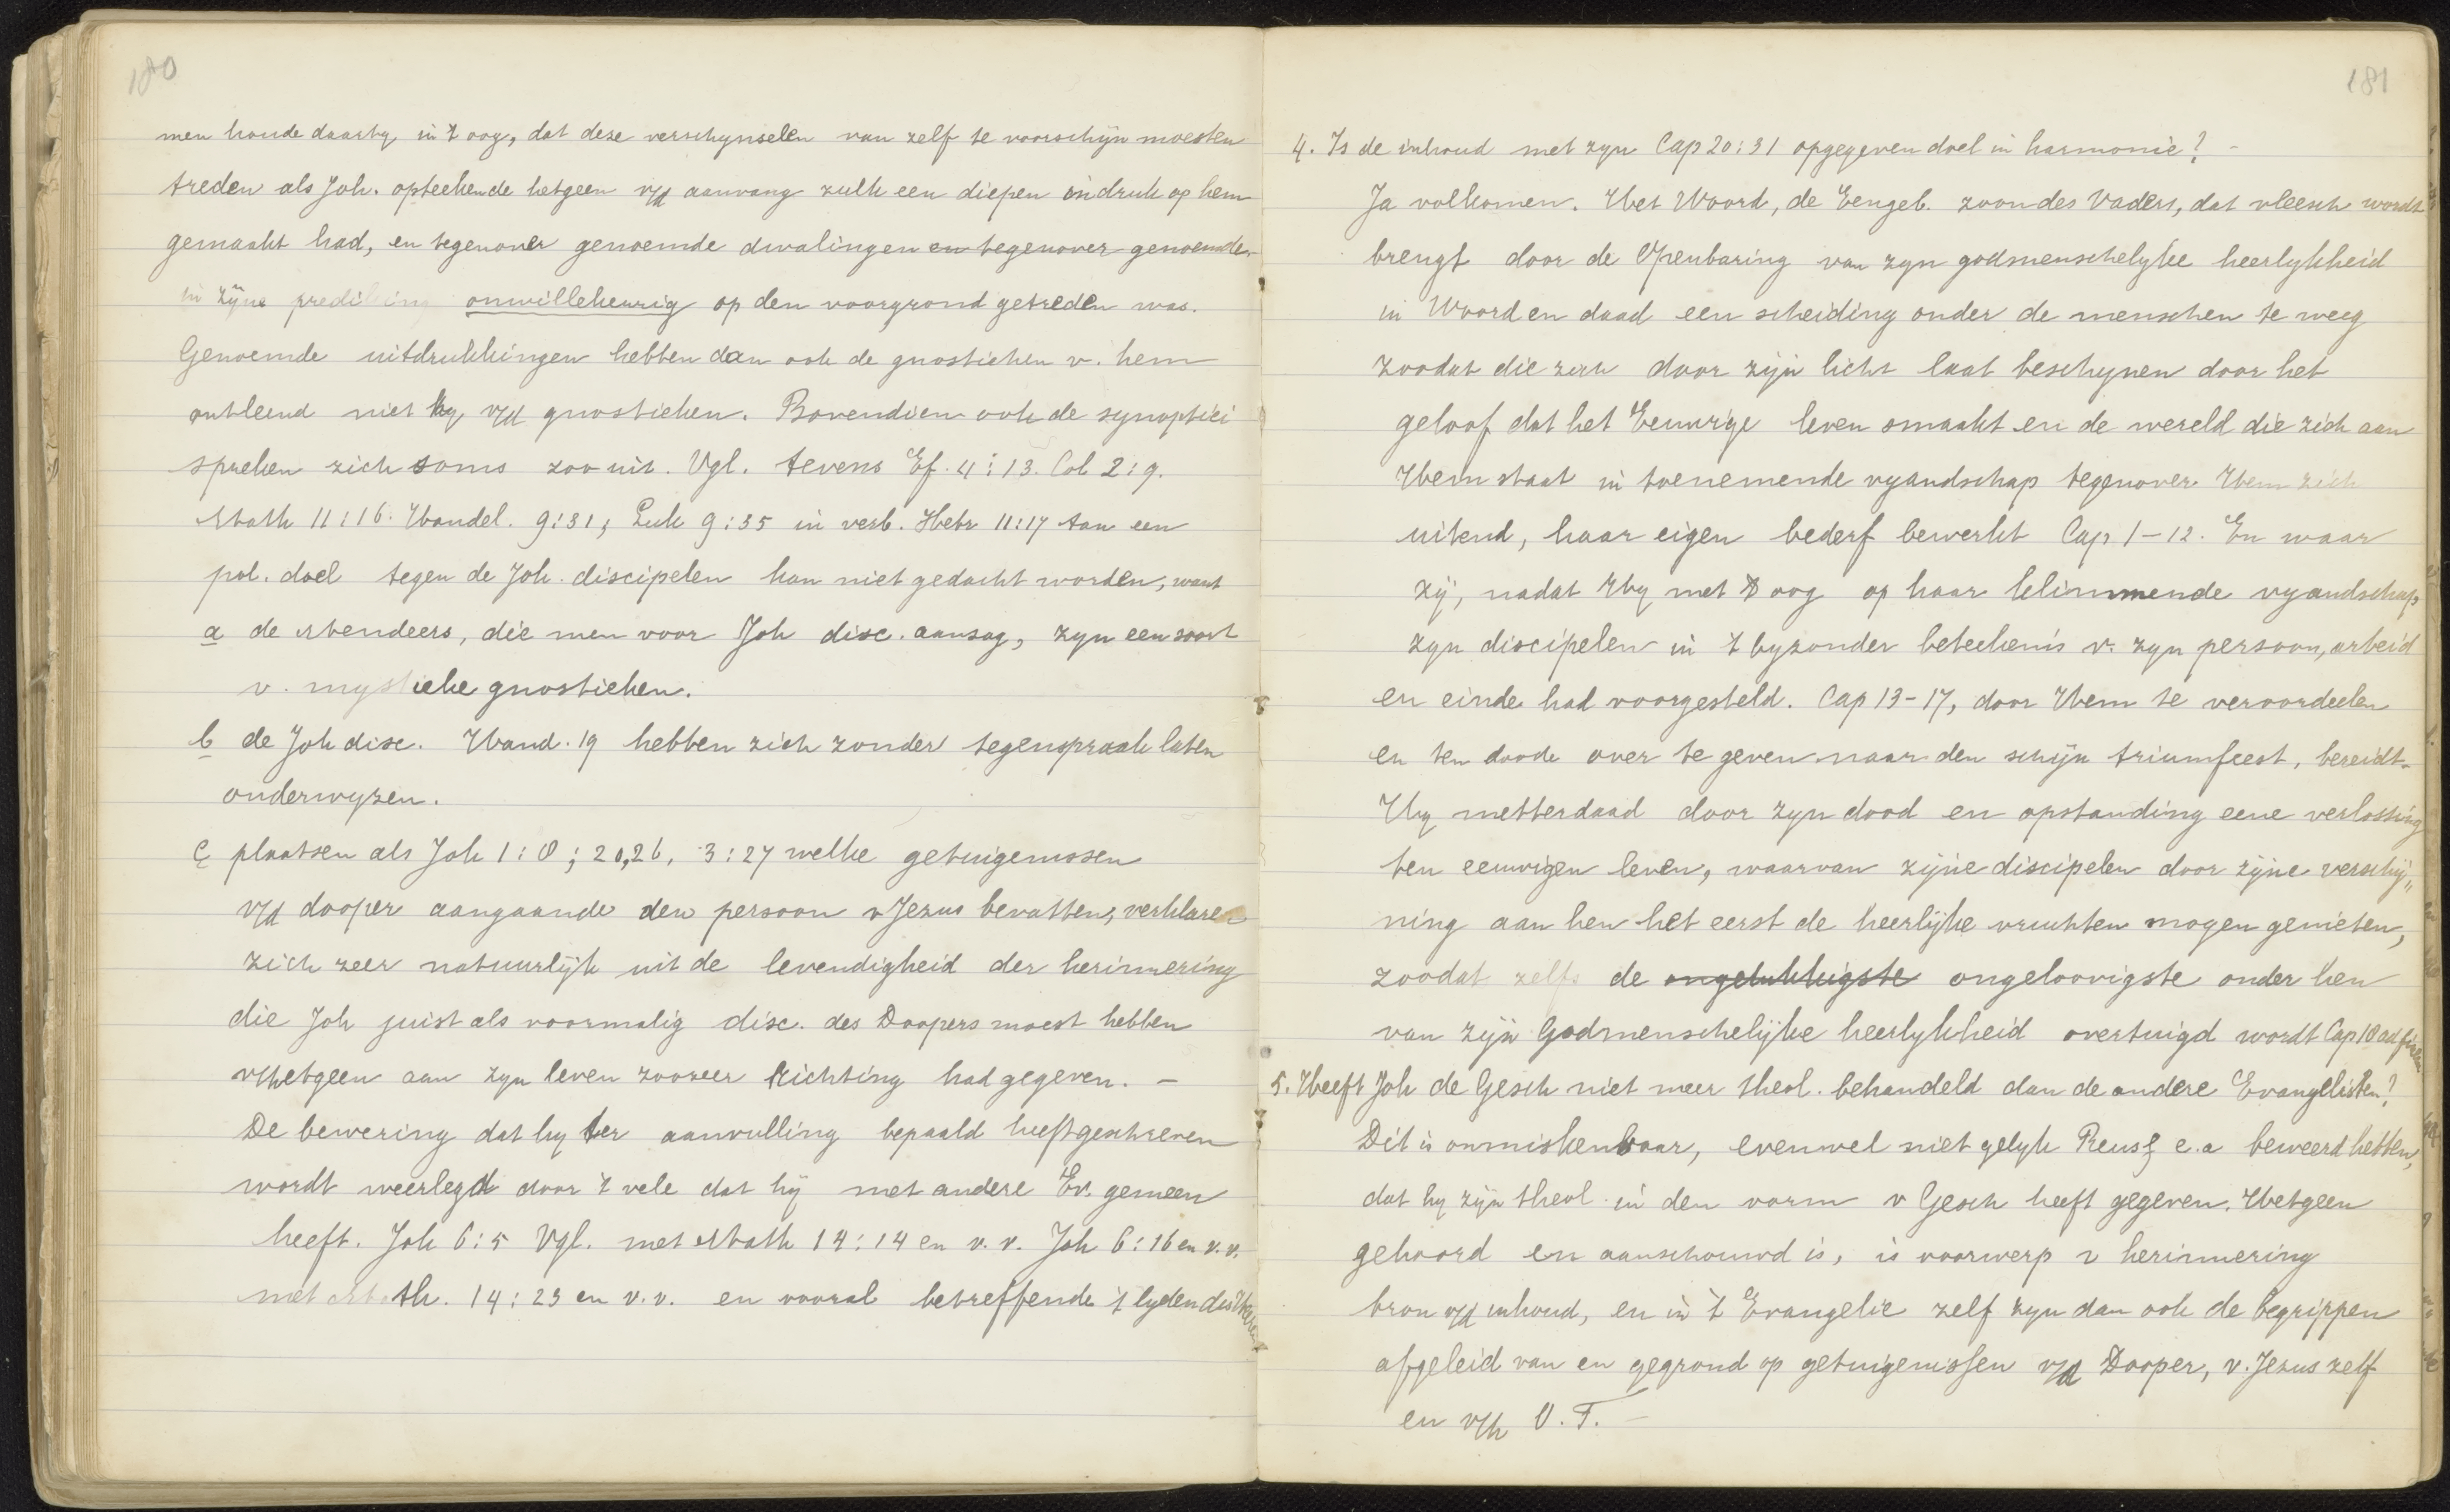 180
men houde daarby in 't oog, dat deze verschynselen van zelf te voorschijn moesten
treden als Joh. opteekende hetgeen v/d aanvang zulk een diepen indruk op hem
gemaakt had, en tegenover genoemde dwalingen en tegenover genoemde
in zijne prediking onwillekeurig op den voorgrond getreden was.
Genoemde uitdrukkingen hebben dan ook de gnostieken v. hem
ontleend niet hy v/d gnostieken. Bovendien ook de synoptici
spreken zich soms zoo uit. Vgl. tevens Ef. 4:13. Col 2:9.
Math 11:16. Handel. 9:31; Luk 9:35 in verb. Hebr 11:17 Aan een
pol. doel tegen de Joh. discipelen kan niet gedacht worden, want
a de Mendeers, die men voor Joh disc. aanzag, zyn een soort
v. mystieke gnostieken.
b de Joh disc. Hand. 19 hebben zich zonder tegenspraak laten
onderwyzen.
c plaatsen als Joh 1:8; 20,26, 3:27 welke getuigenissen
v/d dooper aangaande den persoon v Jezus bevatten, verklaren
zich zeer natuurlijk uit de levendigheid der herinnering
die Joh juist als voormalig disc. des Doopers moest hebben
v/hetgeen aan zyn leven zoozeer richting had gegeven. —
De bewering dat hy ter aanvulling bepaald heeft geschreven
wordt weerlegd door 't vele dat hij met andere Ev. gemeen
heeft. Joh 6:5 Vgl. met Math 14:14 en v.v. Joh 6:16 en v.v.
met Math. 14:23 en v.v. en vooral betreffende 't lyden des Heeren
181
4. Is de inhoud met zyn Cap 20:31 opgegeven doel in harmonie? -
Ja volkomen. Het Woord, de Eengeb. zoon des Vaders, dat vleesch wordt
brengt door de Openbaring van zyn godmenschelyke heerlykheid
in Woord en daad een scheiding onder de menschen te weeg
zoodat die zich door zijn licht laat beschynen door het
geloof dat het Eeuwige leven smaakt en de wereld die zich aan
Hem staat in toenemende vyandschap tegenover Hem zich
uitend, haar eigen bederf bewerkt Cap 1-12. En waar
zij, nadat Hy met 't oog op haar klimmende vyandschap
zyn discipelen in 't byzonder beteekenis v. zyn persoon, arbeid
en einde had voorgesteld. Cap 13-17, door Hem te veroordeelen
en ten doode over te geven naar den schijn triumfeert, bereidt-
Hy metterdaad door zyn dood en opstanding eene verlossing
ten eeuwigen leven, waarvan zijne discipelen door zijne verschij„
ning aan hen het eerst de heerlijke vruchten mogen genieten,
zoodat zelfs de ongelukkigste ongeloovigste onder hen
van zijn Godmenschelijke heerlykheid overtuigd wordt Cap 18 ad finem
5. Heeft Joh de Gesch niet meer theol. behandeld dan de andere Evangelisten?
Dit is onmiskenbaar, evenwel niet gelyk Reusz e.a beweerd hebben,
dat hy zijn theol. in den vorm v Gesch heeft gegeven. Hetgeen
gehoord en aanschouwd is, is voorwerp v herinnering
bron v/d inhoud, en in 't Evangelie zelf zyn dan ook de begrippen
afgeleid van en gegrond op getuigenissen v/d Dooper, v. Jezus zelf
en v/h O.T. —